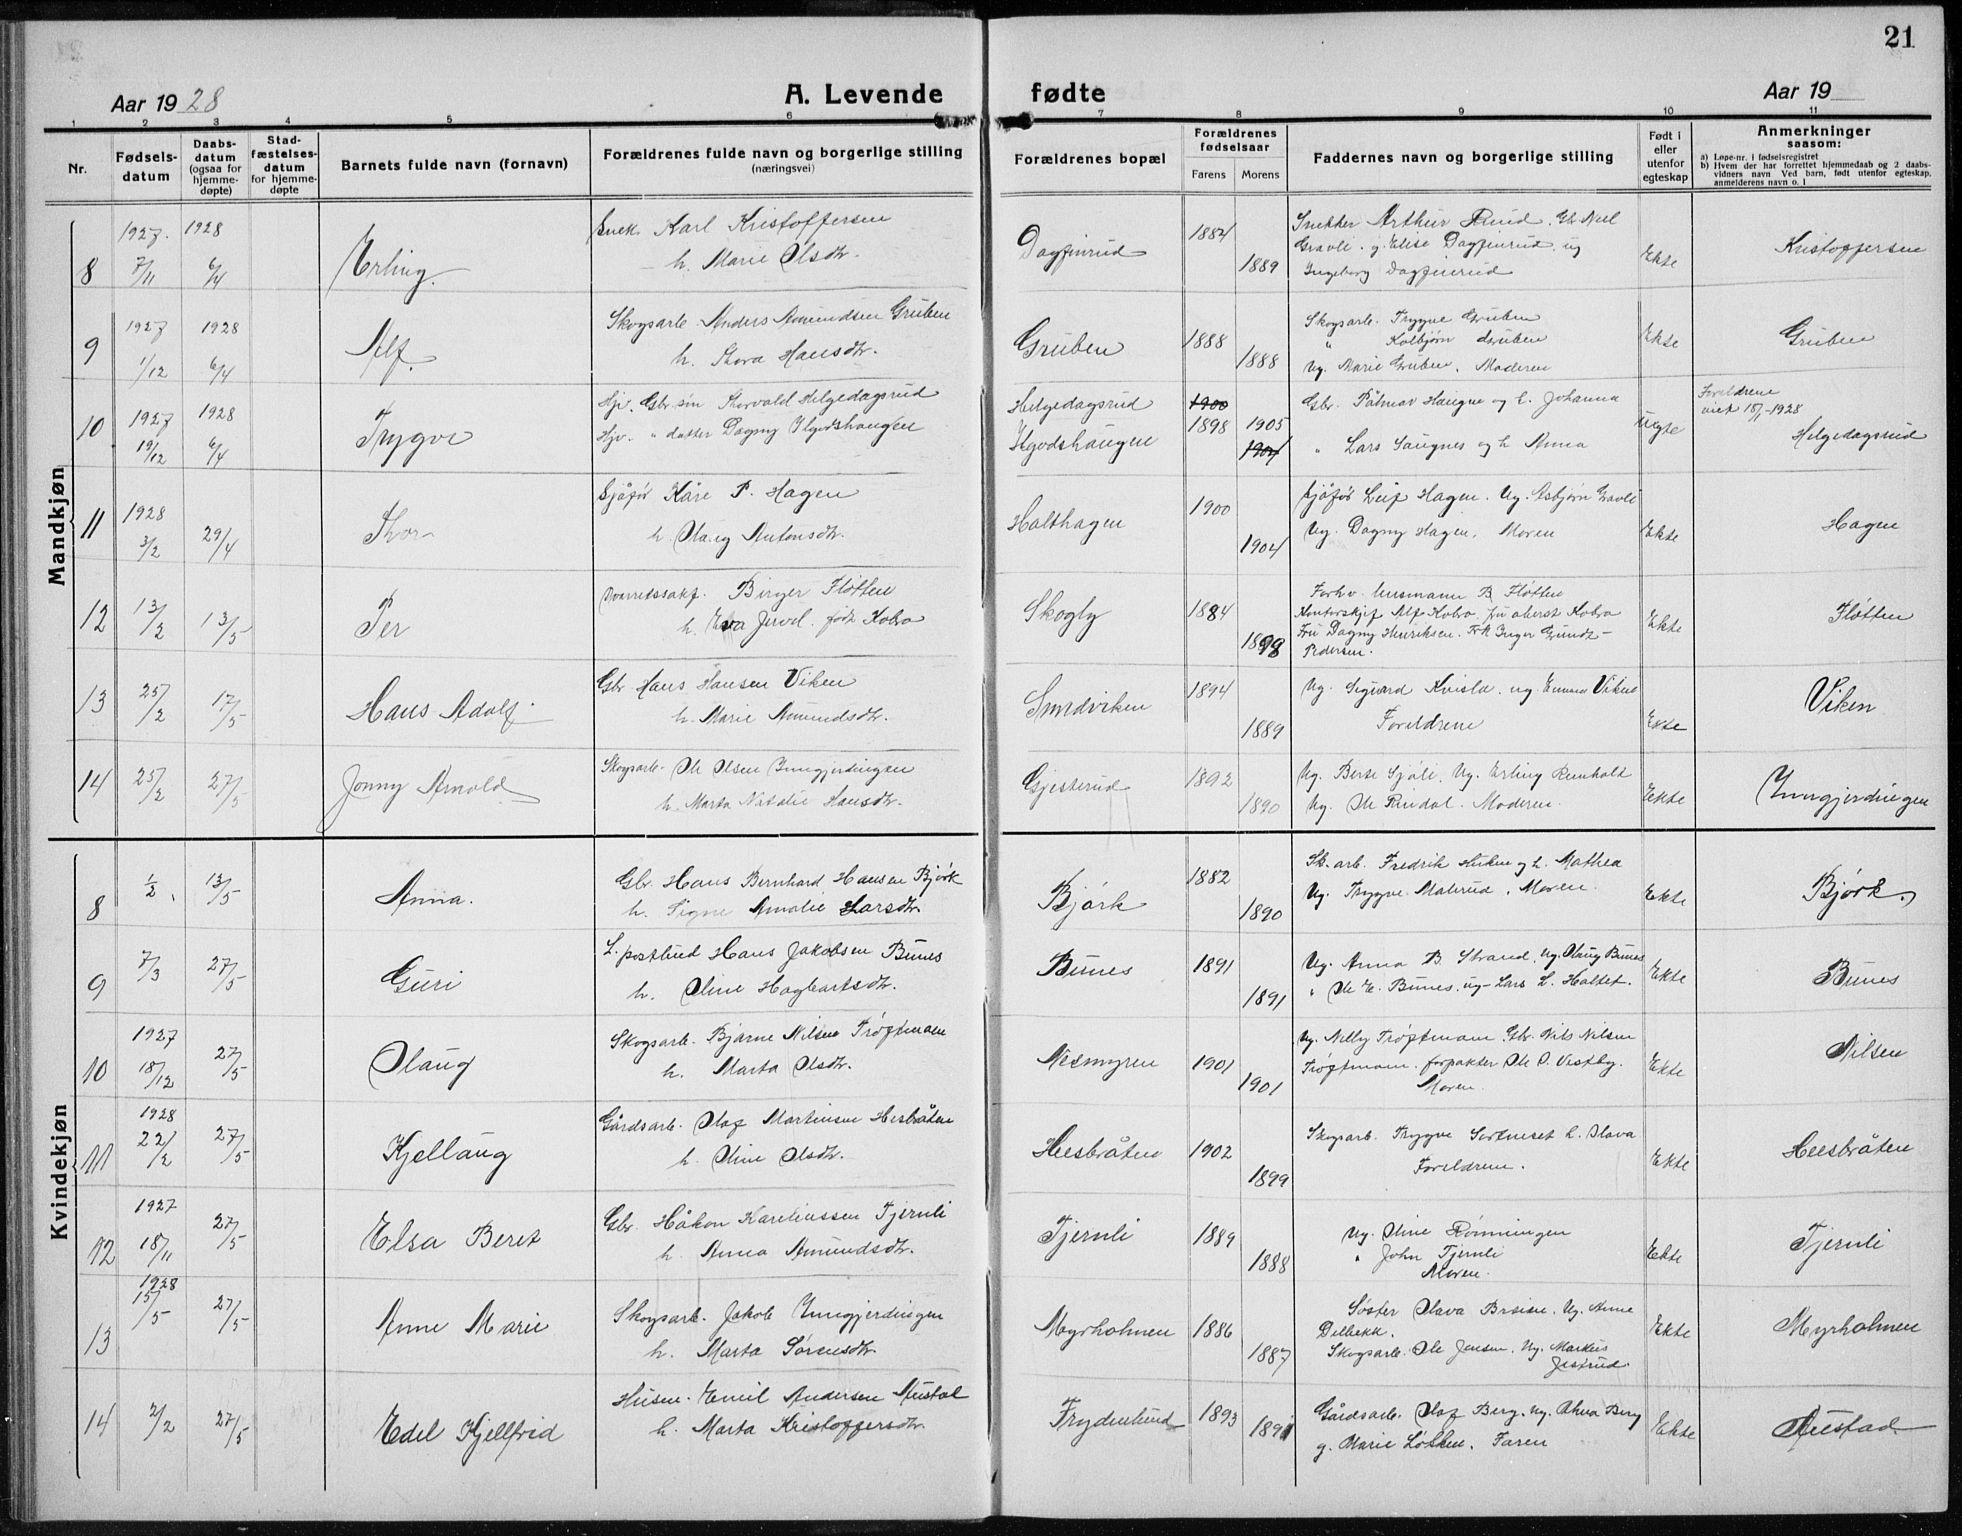 21
Aar 1928
A. Levende fødte
Aar 19
1 2 3 4 5 6 7 8 9 10 11
Nr.
Fødselsdatum
Daabsdatum (ogsaa for hjemmedøpte)
Stadfæstelsesdatum for hjemmedøpte
Barnets fulde navn (fornavn)
Forældrenes fulde navn og borgerlige stilling (næringsvei)
Forældrenes bopæl
Forældrenes fødselsaar
Farens Morens
Faddernes navn og borgerlige stilling
Født i eller utenfor egteskap
Anmerkninger saasom:
a) Løpe-nr. i fødselsregistret
b) Hvem der har forrettet hjemmedaab og 2 daabsvidners navn Ved barn, født utenfor egteskap, anmelderens navn o. l
Mandkjøn
8 1927 7/11 1928 6/4 Erling
Snek. Karl Kristoffersen
h. Marie Olsdtr.
Dagfinrud 1884 1889
Snekker Arthur Ruud. Gb. Nils
Gravli. g. Elise Dagfinrud. ug
Ingeborg Dagfinrud
Ekte Kristoffersen
9 1927 1/12 1928 6/4 Alf
Skogsarb. Anders Amundsen Gruben
h. Thora Hansdtr.
Gruben 1888 1888
Skogsarb. Trygve Gruben
" Kolbjørn Gruben
Ug. Marie Gruben. Moderen
Ekte Gruben
10 1927 19/12 1928 6/4 Trygve
Hjv. Gbr. søn Thorvald Helgedagsrud
Hjv. " datter Dagny
Helgedagsrud 1900 1898 1905 1904
Gbr. Pålmar Haugne og h. Johanna
" Lars Saugnes og h Anna
Uegte
Foreldrene viet 18/1-1928
Helgedagsrud
11 1928 3/2 29/4 Thor
Sjåfør Kåre P. Hagen
h. Olaug Antonsdtr.
Holthagen 1900 1904
Sjåfør Leif Hagen. Ug. Asbjørn Gravli
Ug. Dagny Hagen. Moren
Ekte Hagen
12 13/2 13/5 Per
Birger Fløtten
h. Eva Juvel. født Kobro
Skogly 1884 1898
Forhv. lensmann B. Fløtten
Kontorskjef Alf Kobro fru oberst Kobro
Fru Dagny Henriksen. Frk Inger Grundt-
Pedersen.
Ekte Fløtten
13 25/2 17/5 Hans Adolf
Gbr. Hans Hansen Viken
h. Marie Amundsdtr.
Sundviken 1894 1889
Ug. Sigurd Kvisla. ug. Emma Viken
Foreldrene
Ekte Viken
14 25/2 27/5 Jonny Arnold
Skogsarb. Ole Olsen Inngjerdingen
h. Marta Natalie Hansdtr.
Gjesterud 1892 1890
Ug. Berte Sjøli. Ug. Erling Runholt
Ug. Ole Rindal. Moderen.
Ekte Inngjerdingen
Kvindekjøn
8 1/2 13/5 Anna.
Gbr. Hans Bernhard Hansen Bjørk
h. Signe Amalie Larsdtr.
Bjørk 1882 1890
Sk. arb. Fredrik Huken og h. Mathea
Ug. Trygve Malerud. Moren.
Ekte Bjørk.
9 7/3 27/5 Guri
L. postbud Hans Jakobsen Bunes
h. Oline Hagbartsdtr.
Bunes 1891 1891
Ug. Anna B. Strand. ug. Olaug Bunes
" Ole E. Bunes. ug. Lars L. Holtet.
Ekte Bunes
10 1927 18/12 27/5 Olaug
Skogsarb. Bjarne Nilsen Trøftmoen
h. Marta Olsdtr.
Nesmyren 1901 1901
Ug. Nelly Trøftmoen. Gbr. Nils Nilsen
Trøftmoen. forpakter Ole O. Vestby.
Moren.
Ekte Nilsen
11 1928 22/2 27/5 Kjellaug
Gårdsarb. Olaf Martinsen Hesbråten
h. Oline Olsdtr.
Hesbråten 1902 1899
Skogsarb. Trygve Sortneset h. Olava
Foreldrene.
Ekte Hesbråten
12 1927 18/11 27/5 Elsa Beret
Gbr. Håkon Kareliussen Tjernli
h. Anna Amundsdtr.
Tjernli 1889 1888
Ug. Oline Rønningen
" John Tjernli
Moren.
Ekte Tjernli
13 1928 15/5 27/5 Anne Marie
Skogsarb. Jakob Inngjerdingen
h. Marta Sørensdtr.
Myrholmen 1886 1887
Søster Olava Ug. Anne
Delbekk.
Skogsarb. Ole Jensen. Ug. Markus
Jestrud.
Ekte Myrholmen
14 2/2 27/5 Edel Kjellfrid
Husm. Emil Andersen Austad
h. Marta Kristoffersdtr.
Frydenlund 1893 1891
Gårdsarb. Olaf Berg. ug. Berg
g. Marie Løkken. Faren
Ekte Austad